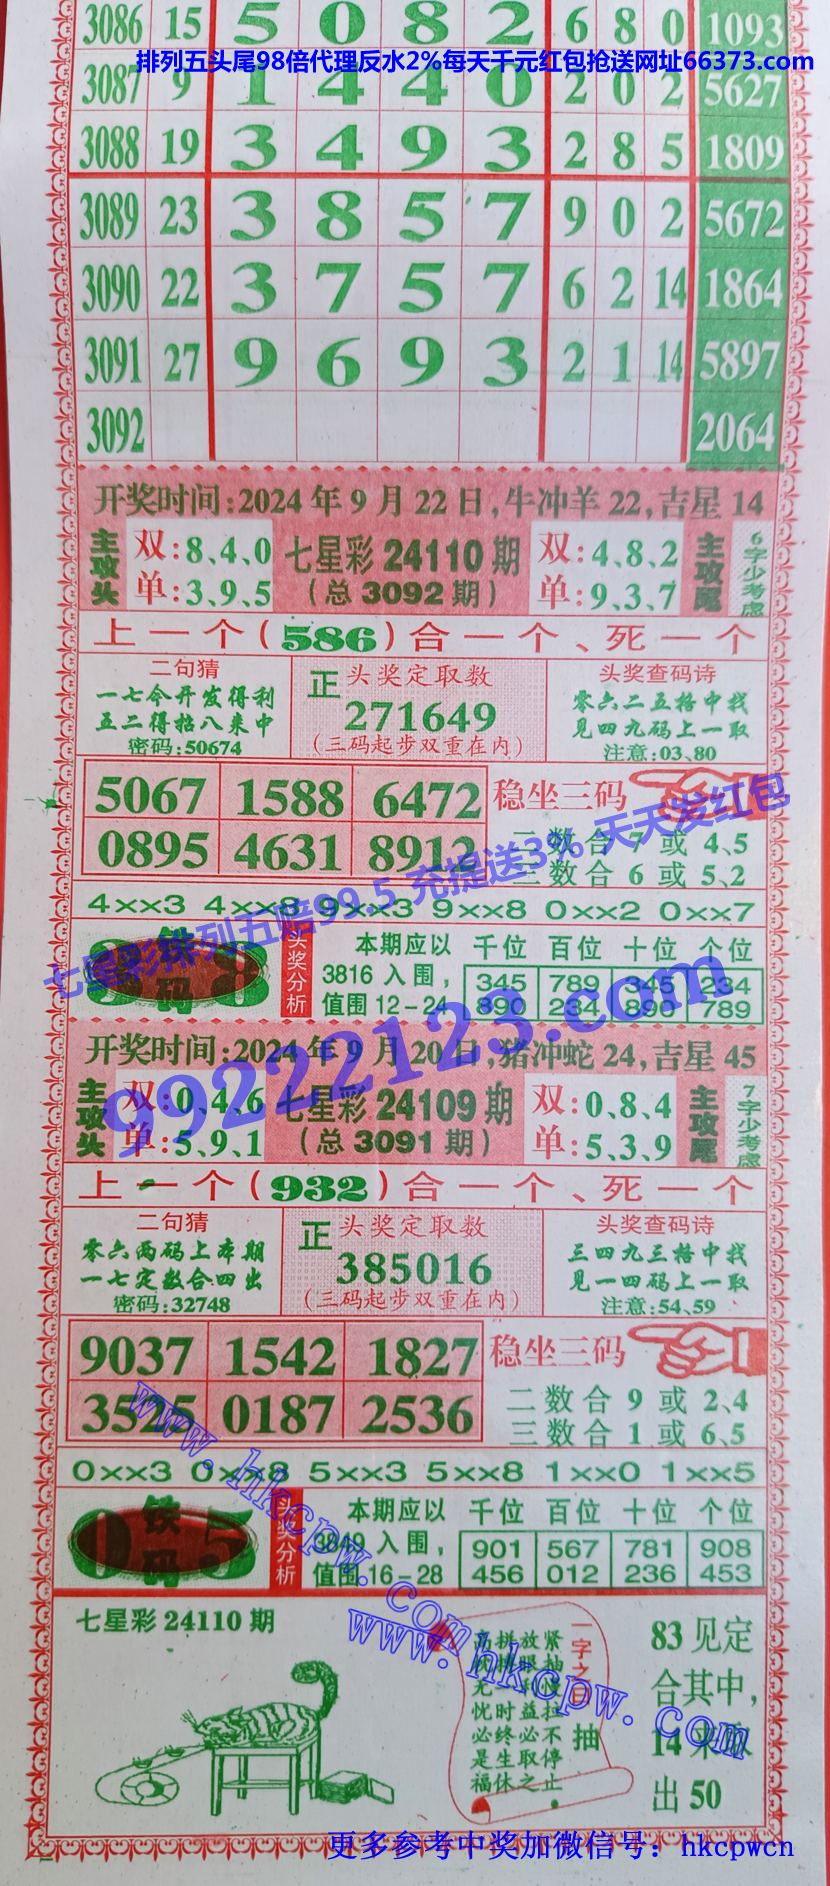 3086 15 5 0 8 2 6 8 0 1093
排列五头尾98倍代理反水2%每天千元红包抢送网址66373.com
3087 9 1 4 4 0 2 0 2 5627
3088 19 3 4 9 3 2 8 5 1809
3089 23 3 8 5 7 9 0 2 5672
3090 22 3 7 5 7 6 2 14 1864
3091 27 9 6 9 3 2 1 14 5897
3092 2064
开奖时间:2024年9月22日,牛冲羊22,吉星14
主攻头
双:8、4、0
单:3、9、5
七星彩24110期
(总3092期)
双:4、8、2
单:9、3、7
主攻尾
6字少考虑
上一个(586)合一个、死一个
二句猜
一七今开发得利
五二得拾八来中
密码:50674
正 头奖定取数
271649
(三码起步双重在内)
头奖查码诗
零六二五格中找
见四九码上一取
注意:03、80
5067 1588 6472
0895 4631 8912
稳坐三码
二数合7或4、5
三数合6或5、2
七星彩排列五赔99.5 充提送3% 天天发红包
4××3 4××8 9××3 9××8 0××2 0××7
铁码
8
头奖分析
本期应以
3816入围,
值围12-24
千位 百位 十位 个位
345 789 345 234
890 234 890 789
99222123.com
开奖时间:2024年9月20日,猪冲蛇24,吉星45
主攻头
双:0、4、6
单:5、9、1
七星彩24109期
(总3091期)
双:0、8、4
单:5、3、9
主攻尾
7字少考虑
上一个(932)合一个、死一个
二句猜
零六两码上本期
一七定数合四出
密码:32748
正 头奖定取数
385016
(三码起步双重在内)
头奖查码诗
三四九三格中找
见一四码上一取
注意:54、59
9037 1542 1827
3525 0187 2536
稳坐三码
二数合9或2、4
三数合1或6、5
www.hkcpw.com
0××3 0××8 5××3 5××8 1××0 1××5
0 铁码 5
头奖分析
本期应以
3849入围,
值围16-28
千位 百位 十位 个位
901 567 781 908
456 012 236 453
七星彩24110期
一字之曰 抽
紧抽慢拉不停止
必取之
时终生休
无忧必是福
83见定
合其中,
14来
出50
www.hkcpw.com
更多参考中奖加微信号：hkcpwcn